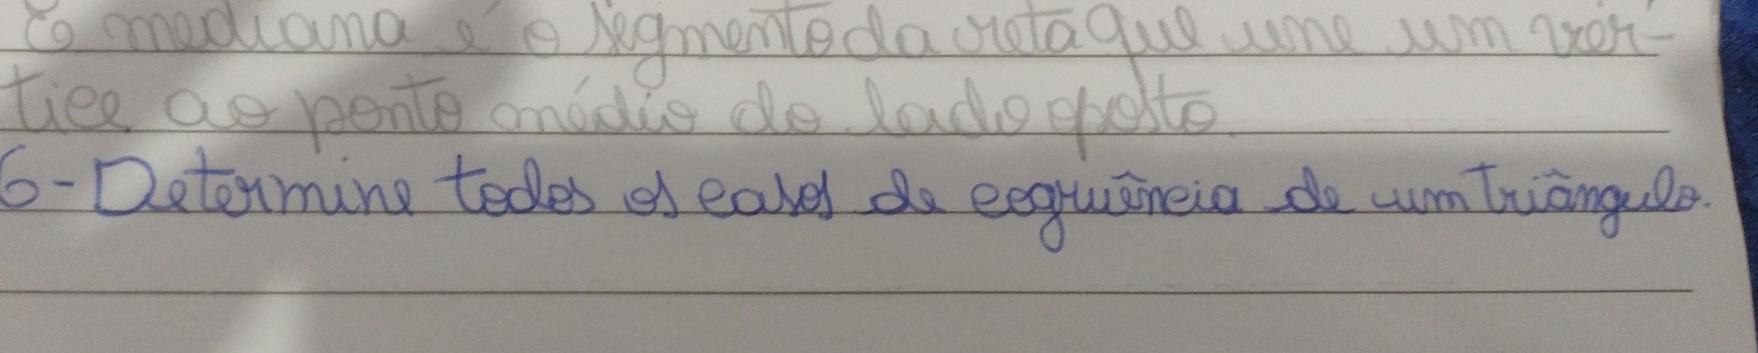 R mediana é o segmento da reta que une um vér-
tice ao ponto médio do lado oposto.
6-Determine todos os casos de cogruência de um triângulo.